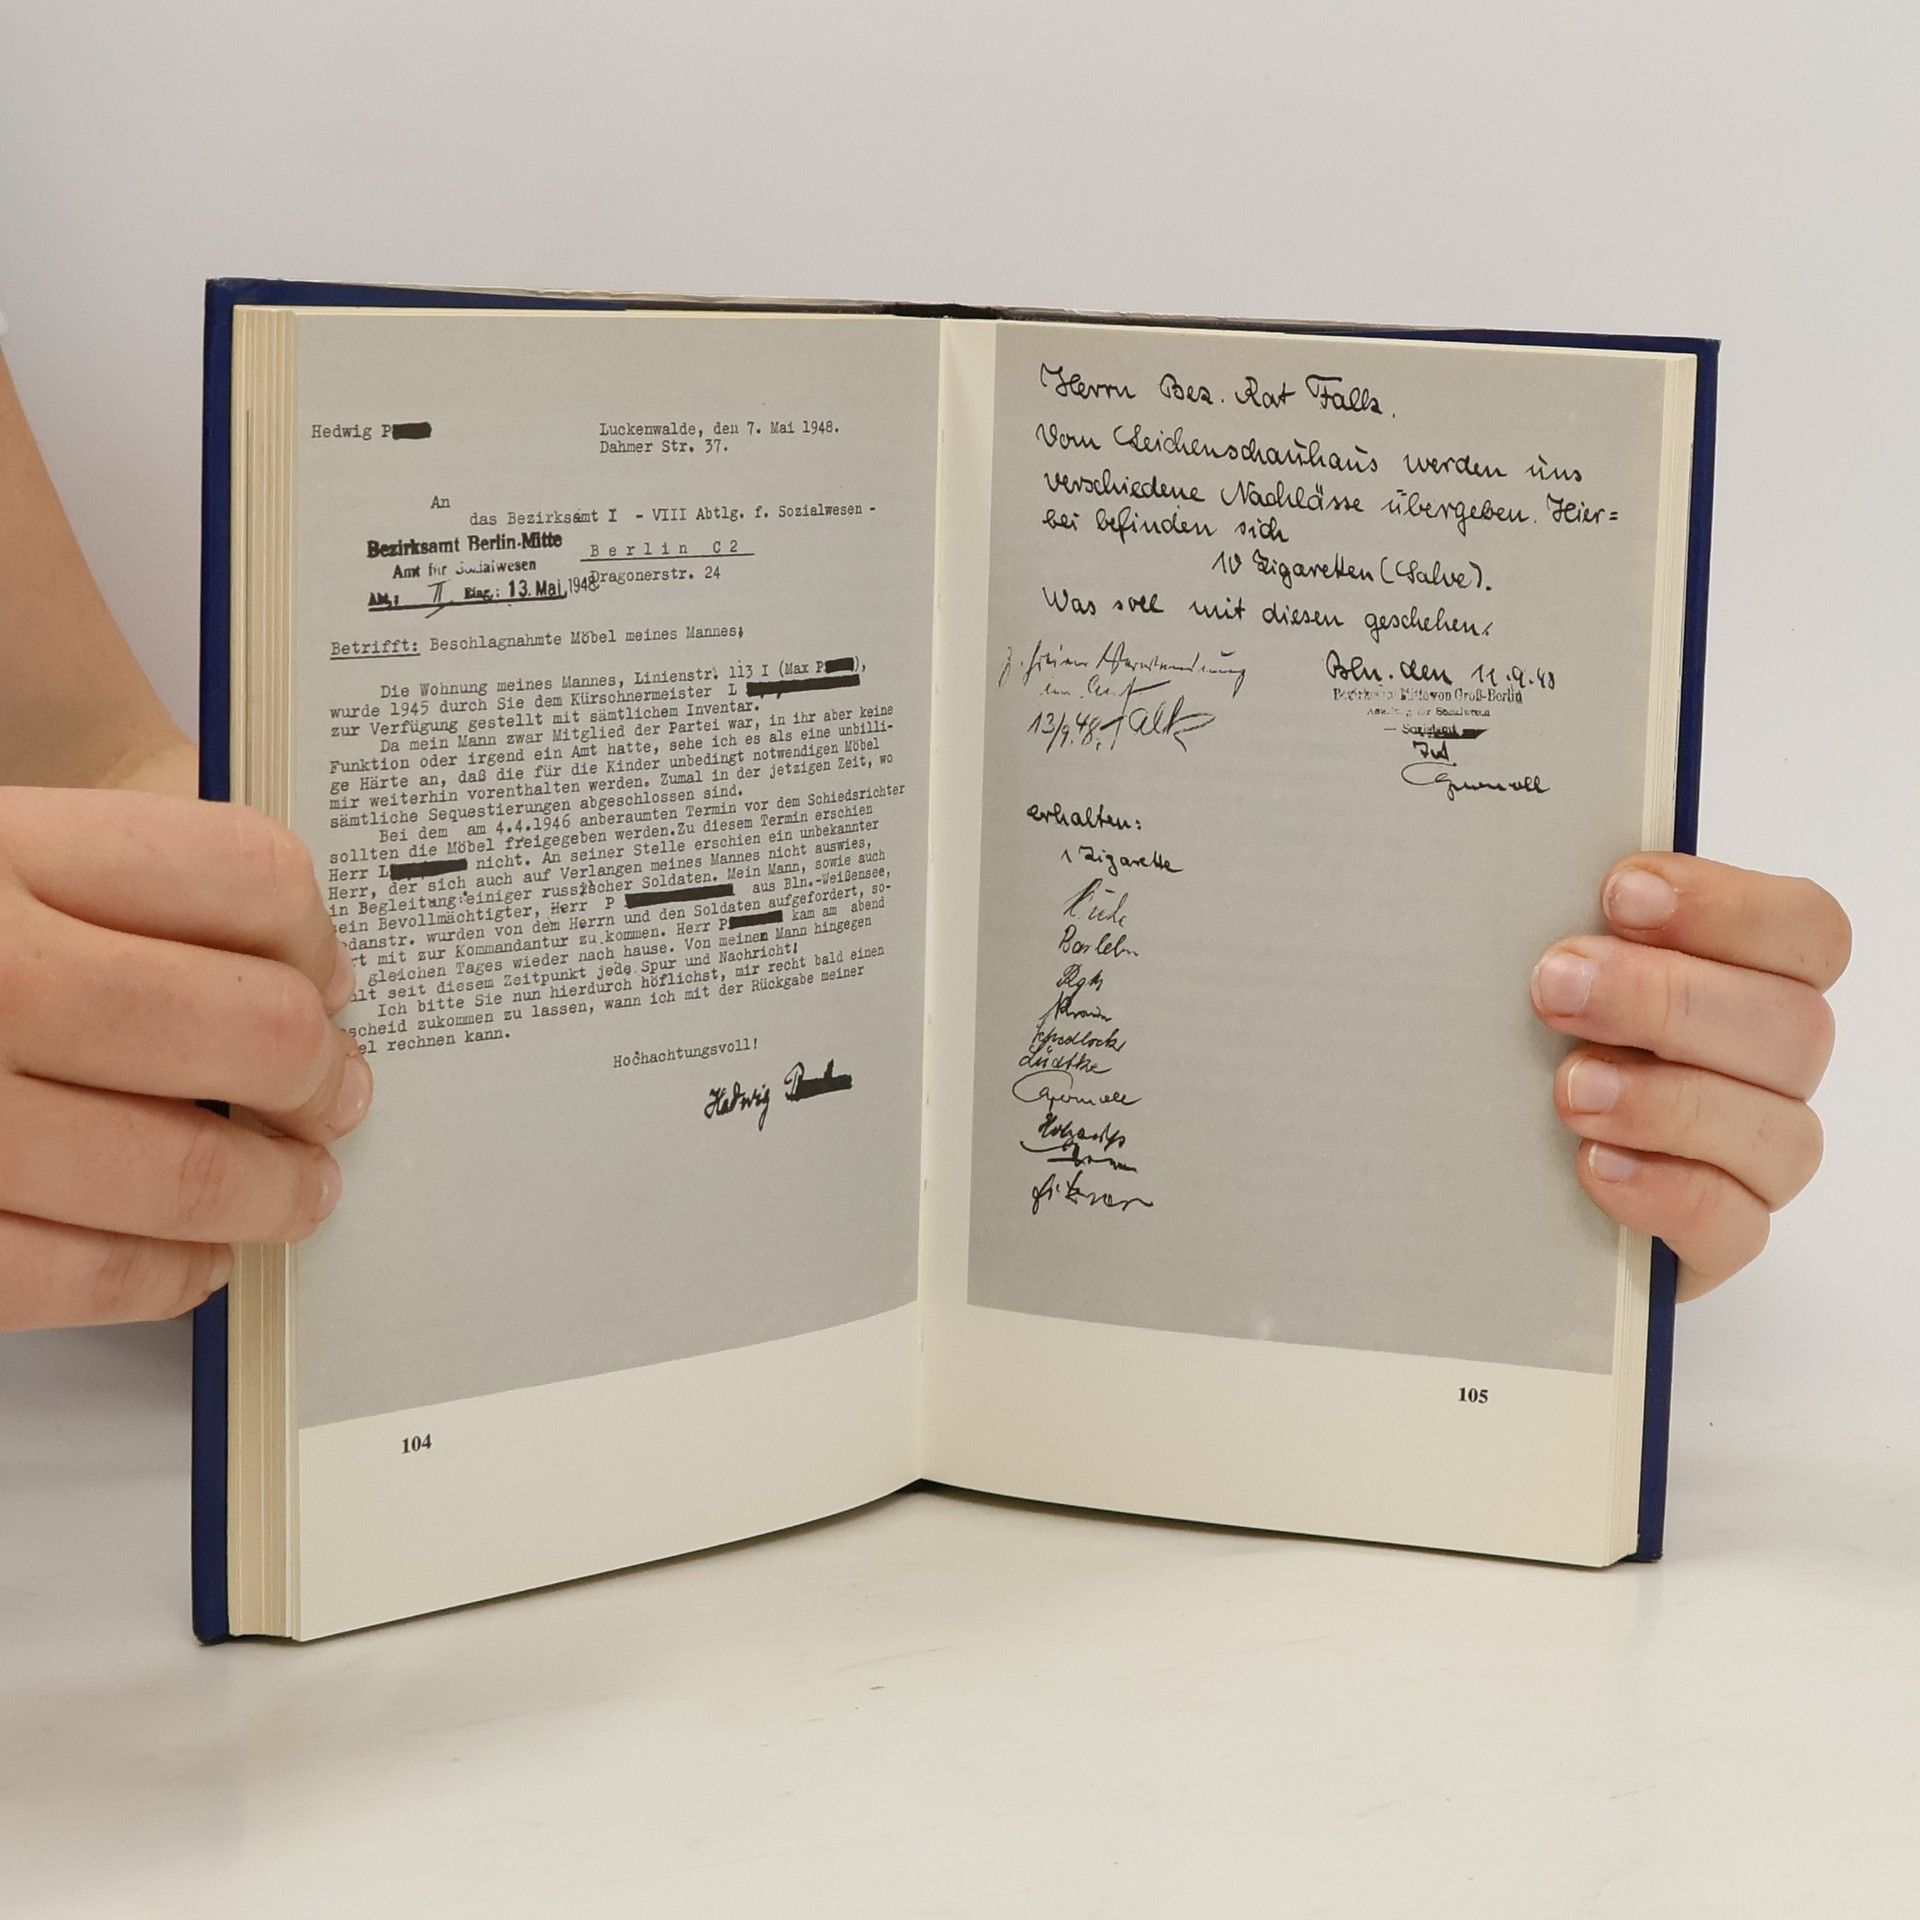 Hedwig P
Luckenwalde, den 7. Mai 1948.
Dahmer Str. 37.
An
das Bezirksamt I - VIII Abtlg. f. Sozialwesen -
Bezirksamt Berlin-Mitte
Berlin C2
Amt für Sozialwesen
Dragonerstr. 24
Abt.: II Eing.: 13. Mai 1948
Betrifft: Beschlagnahmte Möbel meines Mannes;
Die Wohnung meines Mannes, Linienstr. 113 I (Max P),
wurde 1945 durch Sie dem Kürschnermeister L
zur Verfügung gestellt mit sämtlichem Inventar.
Da mein Mann zwar Mitglied der Partei war, in ihr aber keine
Funktion oder irgend ein Amt hatte, sehe ich es als eine unbilli-
ge Härte an, daß die für die Kinder unbedingt notwendigen Möbel
mir weiterhin vorenthalten werden. Zumal in der jetzigen Zeit, wo
sämtliche Sequestierungen abgeschlossen sind.
Bei dem am 4.4.1946 anberaumten Termin vor dem Schiedsrichter
sollten die Möbel freigegeben werden. Zu diesem Termin erschien
Herr L nicht. An seiner Stelle erschien ein unbekannter
Herr, der sich auch auf Verlangen meines Mannes nicht auswies,
in Begleitung einiger russischer Soldaten. Mein Mann, sowie auch
sein Bevollmächtigter, Herr P aus Bln.-Weißensee,
danstr. wurden von dem Herrn und den Soldaten aufgefordert, so-
rt mit zur Kommandantur zu kommen. Herr P kam am abend
gleichen Tages wieder nach hause. Von meinem Mann hingegen
lt seit diesem Zeitpunkt jede Spur und Nachricht!
Ich bitte Sie nun hierdurch höflichst, mir recht bald einen
scheid zukommen zu lassen, wann ich mit der Rückgabe meiner
el rechnen kann.
Hochachtungsvoll!
Hedwig P
104
Herrn Bez. Rat Falk.
Vom Leichenschauhaus werden uns
verschiedene Nachlässe übergeben. Hier=
bei befinden sich
10 Zigaretten (Salve).
Was soll mit diesen geschehen.
Bln. den 11.9.48
13/9.48. Falk
erhalten:
1 Zigarette
Lüdtke
105